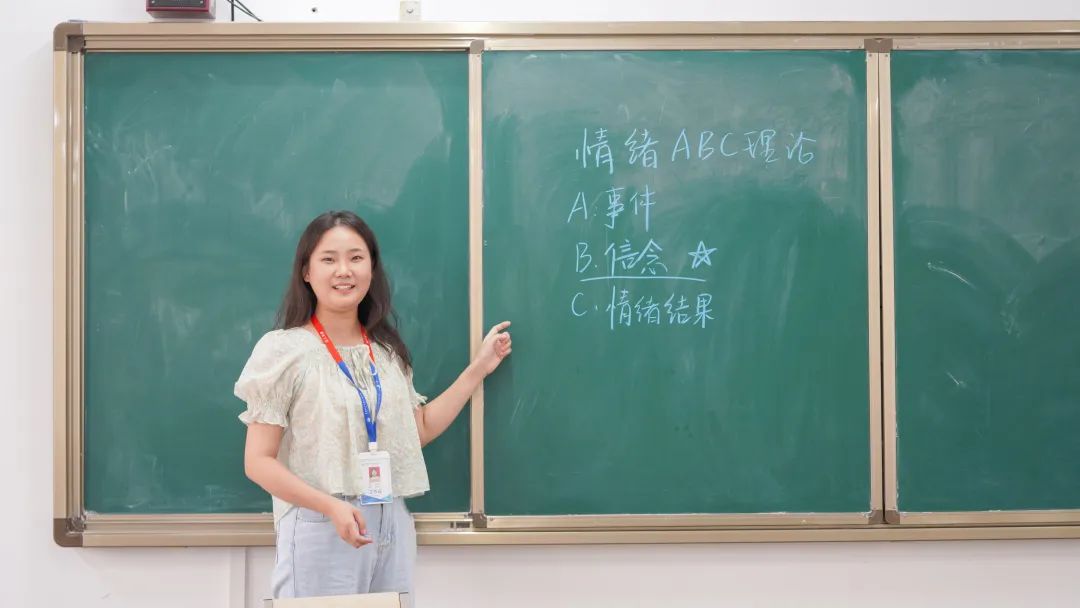 情绪ABC理论
A.事件
B.信念 ☆
C.情绪结果